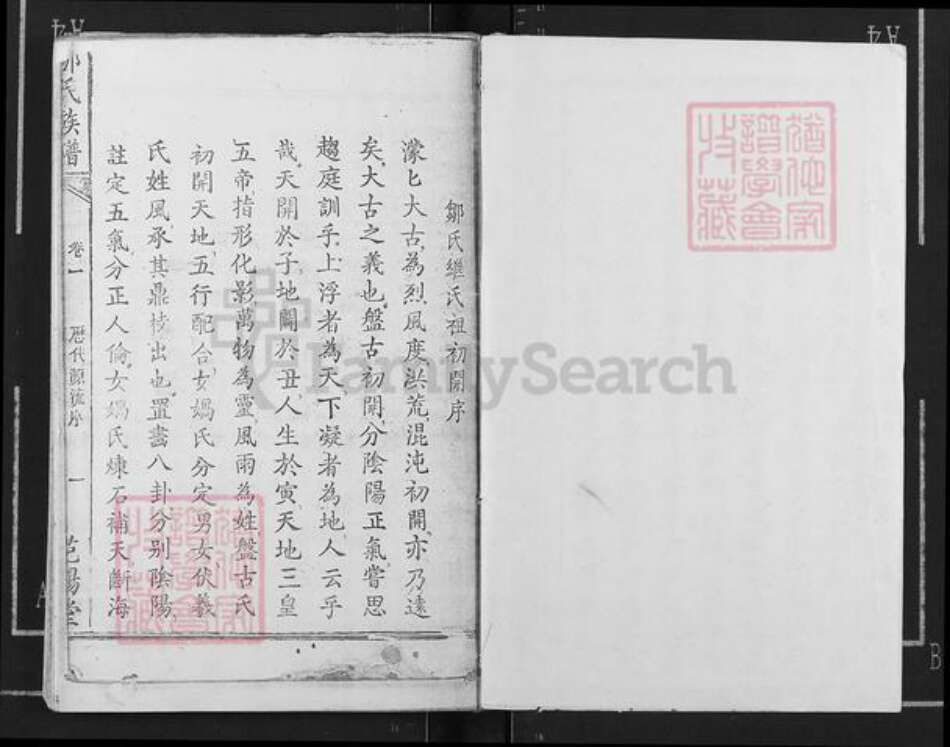 鄒氏繼氏祖初開序
濛匕大古為烈風度洪荒混沌初開亦乃遠
矣大古之義也盤古初開分陰陽正氣嘗思
趨庭訓乎上浮者為天下凝者為地人云乎
哉天開於子地闢於丑人生於寅天地三皇
五帝指形化影萬物為靈風雨為姓盤古氏
初開天地五行配合女媧氏分定男女伏羲
氏姓風承其鼎技出也置畫八卦分別陰陽
註定五氣分正人倫女媧氏煉石補天斷海
鄒氏族譜
卷一
歷代源流序
一
范陽堂
FamilySearch
A4
A4
A
B